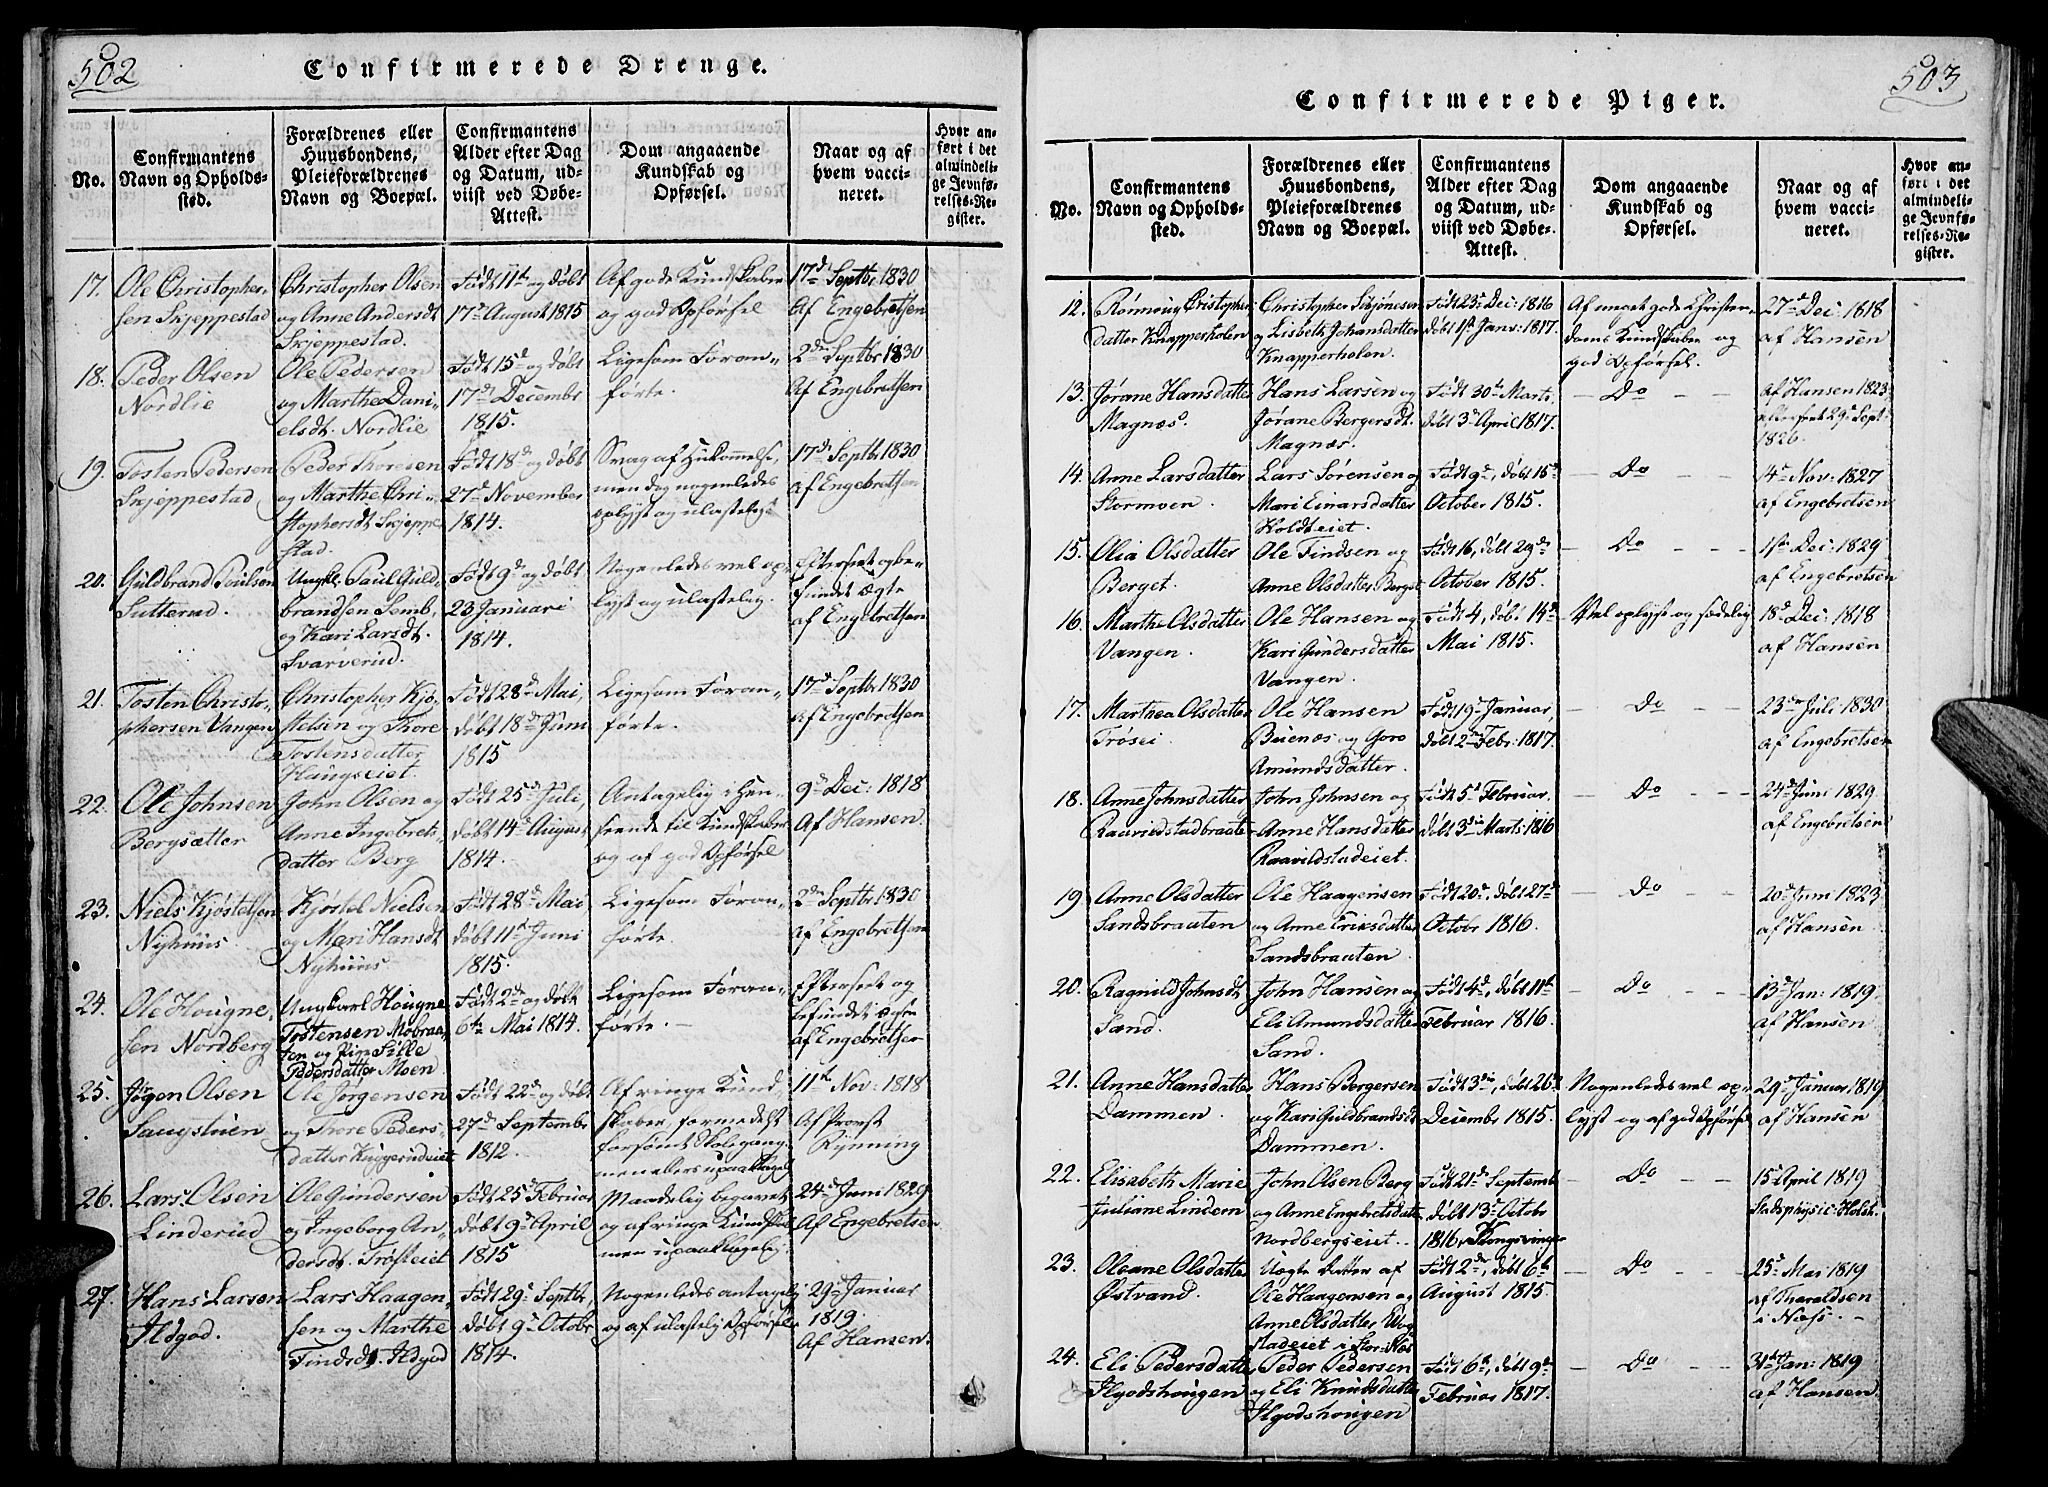 502
Confirmerede Drenge.
No.
Confirmantens
Navn og Opholds-
sted.
Forældrenes eller
Huusbondens,
Pleieforældrenes
Navn og Boepæl.
Confirmantens
Alder efter Dag
og Datum, ud-
viist ved Døbe-
Attest.
Dom angaaende
Kundskab og
Opførsel.
Naar og af
hvem vacci-
neret.
Hvor an-
ført i det
almindeli-
ge Jevnfø-
relses-Re-
gister.
17.
Ole Christopher-
sen Skjeppestad
Christopher Olsen
og Anne Andersdt
Skjeppestad.
Født 11te og døbt
17de August 1815
Af gode Kundskaber
og god Opførsel
17de Septbr 1830
Af Engebretsen
18.
Peder Olsen
Nordlie
Ole Pedersen
og Marthe Dani-
elsdt. Nordlie
Født 15de og døbt
17de Decembr
1815.
Ligesom Foran-
førte.
2den Septbr 1830
Af Engebretsen
19.
Tosten Pedersen
Skjeppestad
Peder Thoresen
og Marthe Chri-
stophersdt Skjeppe-
stad.
Født 18de og døbt
27de November
1814.
Svag af Hukommelse,
men dog nogenledes
oplyst og ulastelig
17de Septbr 1830
af Engebretsen
20.
Guldbrand Paulsen
Sutterud.
Ungkl. Paul Guld-
brandsen Semb,
og Kari Larsdt.
Svarverud.
Født 9de og døbt
23 Januari
1814.
Nogenledes vel op-
lyst og ulastelig.
Efterseet og be-
fundet ægte
af Engebretsen
21.
Tosten Christo-
phersen Vangen
Christopher Kjø-
stelsen og Thore
Tostensdatter
Haugseiet.
Født 28de Mai,
døbt 18de Juni
1815
Ligesom Foran-
førte.
17de Septbr 1830
af Engebretsen
22.
Ole Johnsen
Bergsætter
John Olsen og
Anne Ingebrets-
datter Berg
Født 25de Juli,
døbt 14de August
1814.
Antagelig i Hen-
seende til Kundskaber
og af god Opførsel
9de Dec: 1818
Af Hansen.
23.
Niels Kjøstelsen
Nyhuus.
Kjøstel Nielsen
og Mari Hansdt
Nyhuus
Født 28de Mai,
døbt 11te Juni
1815.
Ligesom Foran-
førte.
2den Septbr 1830
af Engebretsen
24.
Ole Hougne-
sen Nordberg
Ungkarl Hougne
Tostensen Mobraa-
ten og Pige Sille
Pedersdatter Moen
Født 2de og døbt
6te Mai 1814.
Ligesom Foran-
førte.
Efterseet og
befundet ægte
af Engebretsen
25.
Jørgen Olsen
Saugstuen
Ole Jørgensen
og Thore Peders-
datter Kuggerudeiet
Født 22de og døbt
27de Septembr
1812.
Af ringe Kund-
skaber, formedelst
forsømt Skolegang,
men ellers upaaklagelig
11te Nov: 1818
Af Provst
Rynning
26.
Lars Olsen
Linderud
Ole Gundersen
og Ingeborg An-
dersdt. Trøsteiet
Født 25de Februar
døbt 9de April
1815
Maadelig begavet
og af ringe Kundskab
men upaaklagelig.
24de Juni 1829
Af Engebretsen
27.
Hans Larsen
Ilgod.
Lars Haagen-
sen og Marthe
Findsdt. Ilgod
Født 29de Septbr,
døbt 9de Octobr
1814.
Nogenledes antagelig
og af ulastelig Opførsel
29de Januar
1819
Af Hansen.
503
Confirmerede Piger.
No.
Confirmantens
Navn og Opholds-
sted.
Forældrenes eller
Huusbondens,
Pleieforældrenes
Navn og Boepæl.
Confirmantens
Alder efter Dag
og Datum, ud-
viist ved Døbe-
Attest.
Dom angaaende
Kundskab og
Opførsel.
Naar og af
hvem vacci-
neret.
Hvor an-
ført i det
almindeli-
ge Jevnfø-
relses-Re-
gister.
12.
Rønnoug Cristophers
datter Knapperholen
Christopher Skjønesen
og Lisbeth Johansdatter
Knapperholen.
Født 23de Dec: 1816
døbt 1ste Janr: 1817.
Af meget gode Christen-
doms Kundskaber og
god Opførsel.
27de Dec: 1818
af Hansen
13.
Jørane Hansdatter
Magnæs.
Hans Larsen og
Jørane Bergersdt.
Magnæs.
Født 30te Marts.
døbt 3de April 1817.
Do
Af Hansen 1823
Efterseet 29de Sept:
1826.
14.
Anne Larsdatter
Stormoen.
Lars Sørensen og
Mari Einarsdatter
Holdteiet.
Født 9de, døbt 15de
October 1815.
Do
14de Nov: 1827
af Engebretsen
15.
Olia Olsdatter
Berget.
Ole Findsen og
Anne Olsdatter Berget
Født 16, døbt 29de
October 1815.
Do
1ste Dec: 1829
af Engebretsen
16.
Marthe Olsdatter
Vangen.
Ole Hansen og
Kari Gundersdatter
Vangen.
Født 4, døbt 14de
Mai 1815.
Vel oplyst og sædelig
18de Dec: 1818
af Hansen
17.
Marthea Olsdatter
Trøsei.
Ole Hansen
Buenæs og Goro
Amundsdatter.
Født 19de Januar,
døbt 2den Febr: 1817.
Do
23de Juli 1830
af Engebretsen
18.
Anne Johnsdatter
Raavildstadbraate
John Johnsen og
Anne Hansdatter
Raavildstadeiet.
Født 5te Februar.
døbt 3die Marts 1816
Do
24de Juni 1829
af Engebretsen
19
Anne Olsdatter
Sandsbraaten
Ole Haagensen
og Anne Ericsdatter
Sandsbraaten
Født 20de, døbt 27de
Octobr 1816.
Do
20de Juni 1823
af Hansen
20.
Ragnild Johnsdt
Sand.
John Hansen og
Eli Amundsdatter
Sand.
Født 4de, døbt 11te
Februar 1816.
Do
13de Jan: 1819.
af Hansen
21.
Anne Hansdatter
Dammen.
Hans Bergersen
og Kari Guldbrandsdt
Dammen.
Født 3die, døbt 26de
Decembr 1815.
Nogenledes vel op-
lyst og af god Opførsel
29de Januar 1819
af Hansen
22.
Elisabeth Marie
Juliane Lindem
John Olsen Berg
og Anne Engebretsdatter
Nordbergseiet.
Født 21de Septemb
døbt 13de Octobr
1816, Kongsvinger
Do
15de April 1819
Stadsphysic: Holst.
23.
Oleane Olsdatter
Østvand.
Uægte Datter af
Ole Haagensen og
Anne Olsdatter
stadeiet i Stor-Næs
Født 2de, døbt 6te
August 1815.
Do
25de Mai 1819
af Tharaldsen
i Næss.
24.
Eli Pedersdatter
Ilgodshougen
Peder Pedersen
og Eli Knudsdatter
Ilgodshougen
Født 6te, døbt 9de
Februar 1817.
Do
31te Jan: 1819
af Hansen